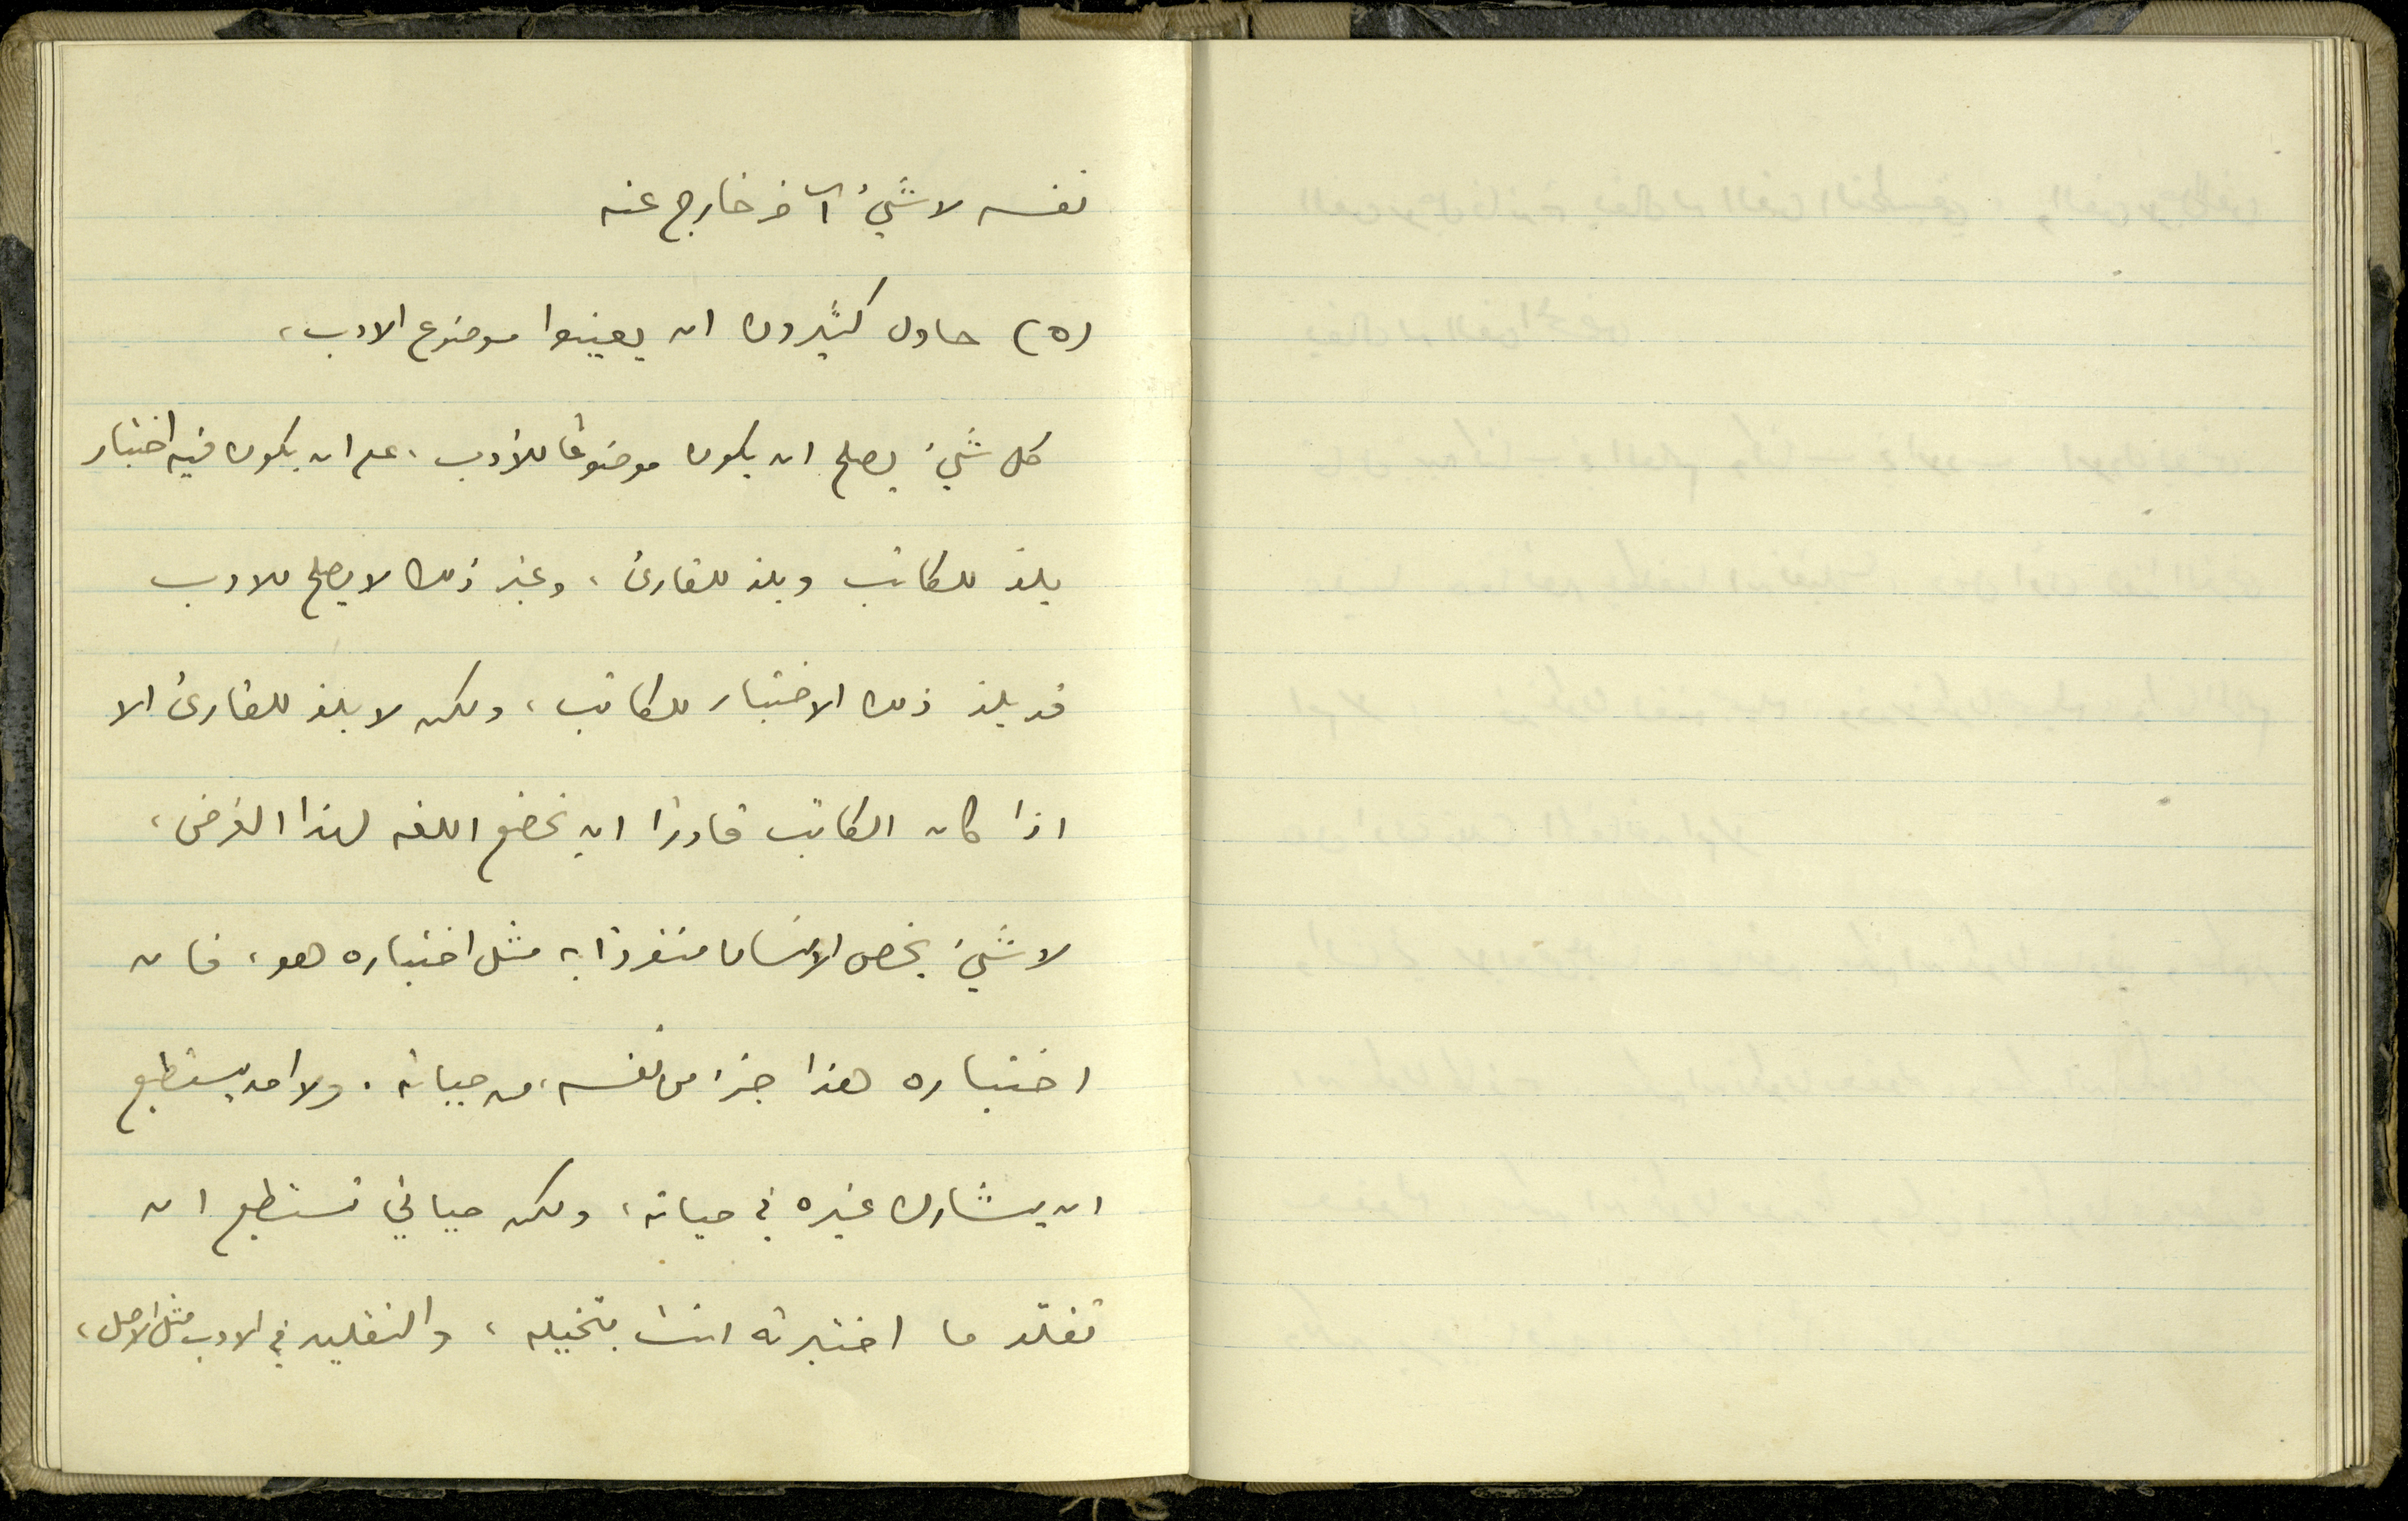 نفسه لا شيء آخر خارج عنه
(٥) حاول كثيرون ان يعينوا موضوع الادب،
كل شيء يصلح ان يكون موضوعًا للأدب، على ان يكون فيه اختبار
يلذ للكاتب ويلذ للقارئ، وغير ذلك لا يصلح للادب
قد يلذ ذلك الاختبار للكاتب، ولكن لا يلذ للقارئ الا
اذا كان الكاتب قادرًا ان يخضع اللغه لهذا الغرض،
لا شيء يخص الانسان منفردًا به مثل اختباره هو، فان
اختباره هذا جزء من نفسه، من حياته. ولا احد يستطيع
ان يشارك غيره في حياته، ولكن حياتي تستطيع ان
تقلّد ما اختبرته انت بتخيله، والتقليد في الادب مثل الاصل،